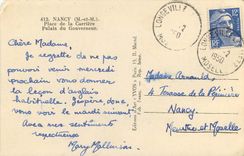 412. NANCY (M.-et-M.)
Place de la Carrière
Palais du Gouverneur.
Chère Madame,
Je regrette de ne pas
pouvoir venir mercredi
prochain vous donner
la leçon d'anglais
habituelle. J'espère, donc,
vous voir le mardi suivant
Avec mes sentiments
respectueux
Mary
LONGEVILLE
1950
Madame
de la Pépinière
Nancy
Meurthe et Moselle